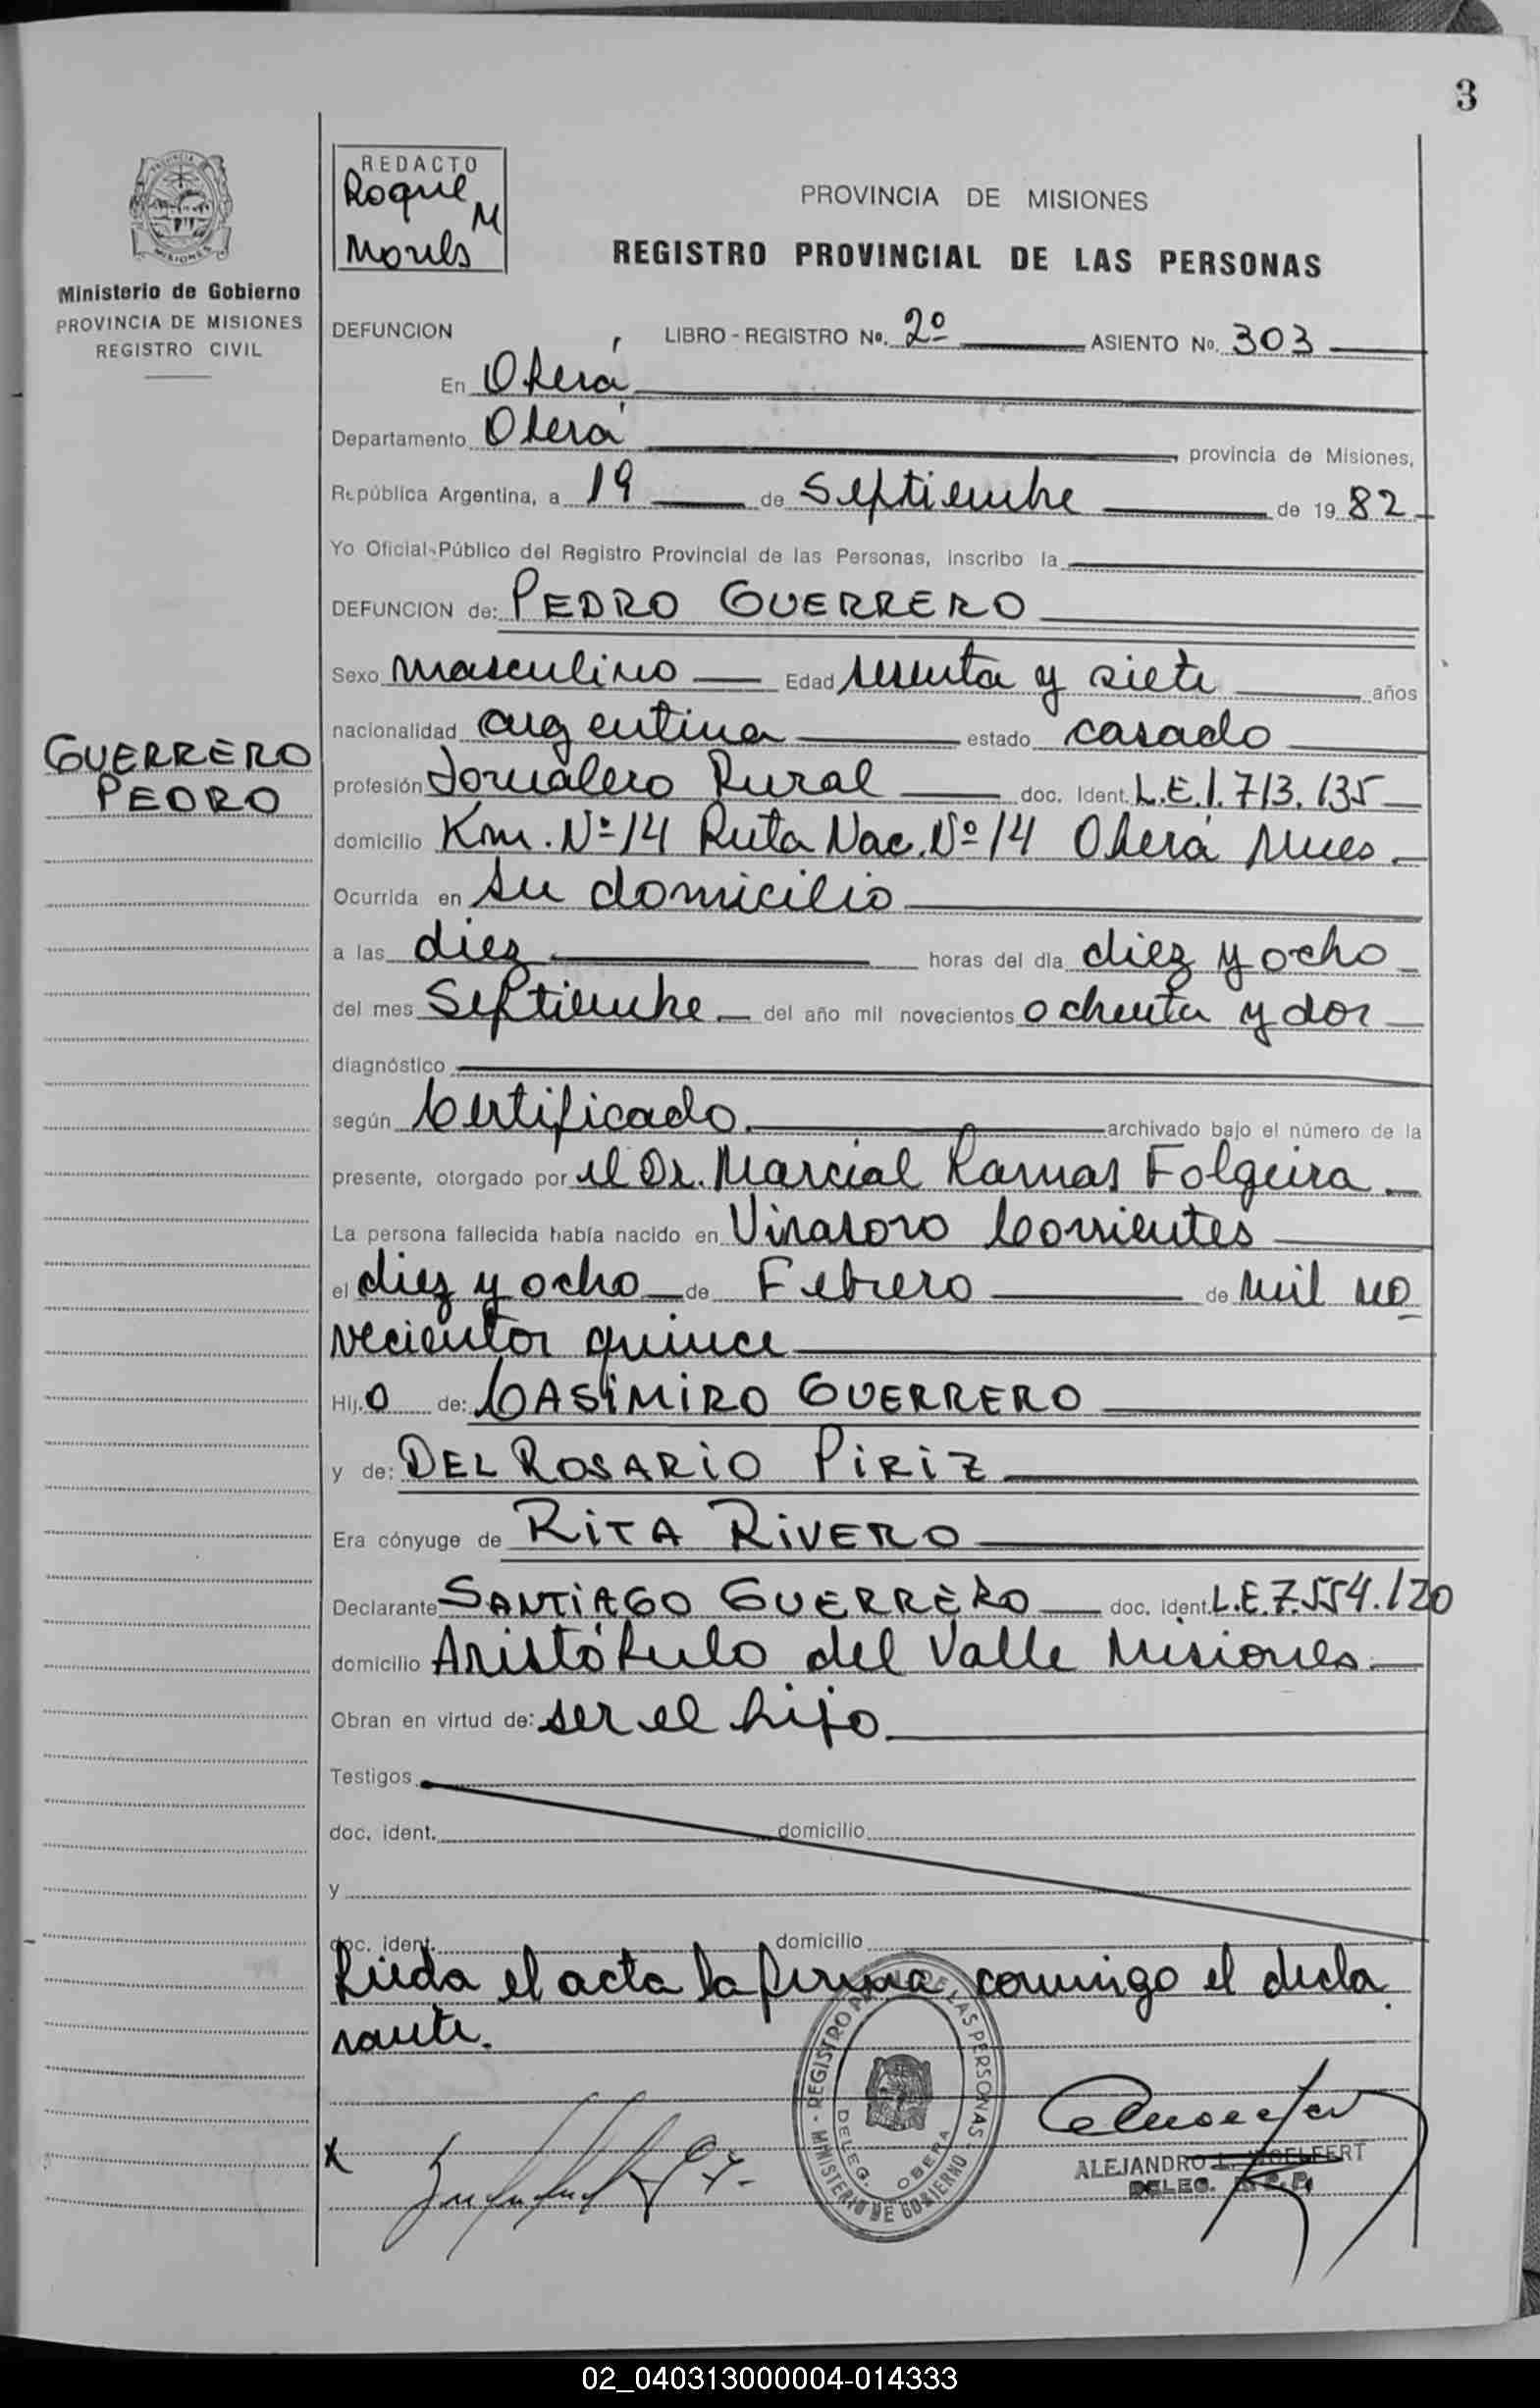 3
REDACTO
Roque
M
Morels
PROVINCIA DE MISIONES
REGISTRO PROVINCIAL DE LAS PERSONAS
Ministerio de Gobierno
PROVINCIA DE MISIONES
REGISTRO CIVIL
DEFUNCION LIBRO - REGISTRO No. 2º ASIENTO No. 303
En Oberá
Departamento Oberá provincia de Misiones,
República Argentina, a 19 de Septiembre de 1982
Yo Oficial Público del Registro Provincial de las Personas, inscribo la
DEFUNCION de: PEDRO GUERRERO
Sexo masculino Edad sesenta y siete años
nacionalidad argentina estado casado
GUERRERO
PEDRO
profesión Jornalero Rural doc. Ident. L.E.1.713.135
domicilio Km. Nº 14 Ruta Nac. Nº 14 Oberá Mnes
Ocurrida en su domicilio
a las diez horas del día diez y ocho
del mes Septiembre del año mil novecientos ochenta y dos
diagnóstico
según Certificado archivado bajo el número de la
presente, otorgado por el Dr. Marcial Ramas Folgeira
La persona fallecida había nacido en Virasoro Corrientes
el diez y ocho de Febrero de mil no
vecientos quince
Hijo de: CASIMIRO GUERRERO
y de: DEL ROSARIO PIRIZ
Era cónyuge de RITA RIVERO
Declarante SANTIAGO GUERRERO doc. ident. L.E.7.554.120
domicilio Aristóbulo del Valle Misiones
Obran en virtud de: ser el hijo
Testigos
doc. ident. domicilio
y
doc. ident. domicilio
Leída el acta la firma conmigo el decla
rante.
REGISTRO DE LAS PERSONAS
MINISTERIO DE GOBIERNO
DELEG. OBERA
x
ALEJANDRO L.
DELEG.
02_040313000004-014333